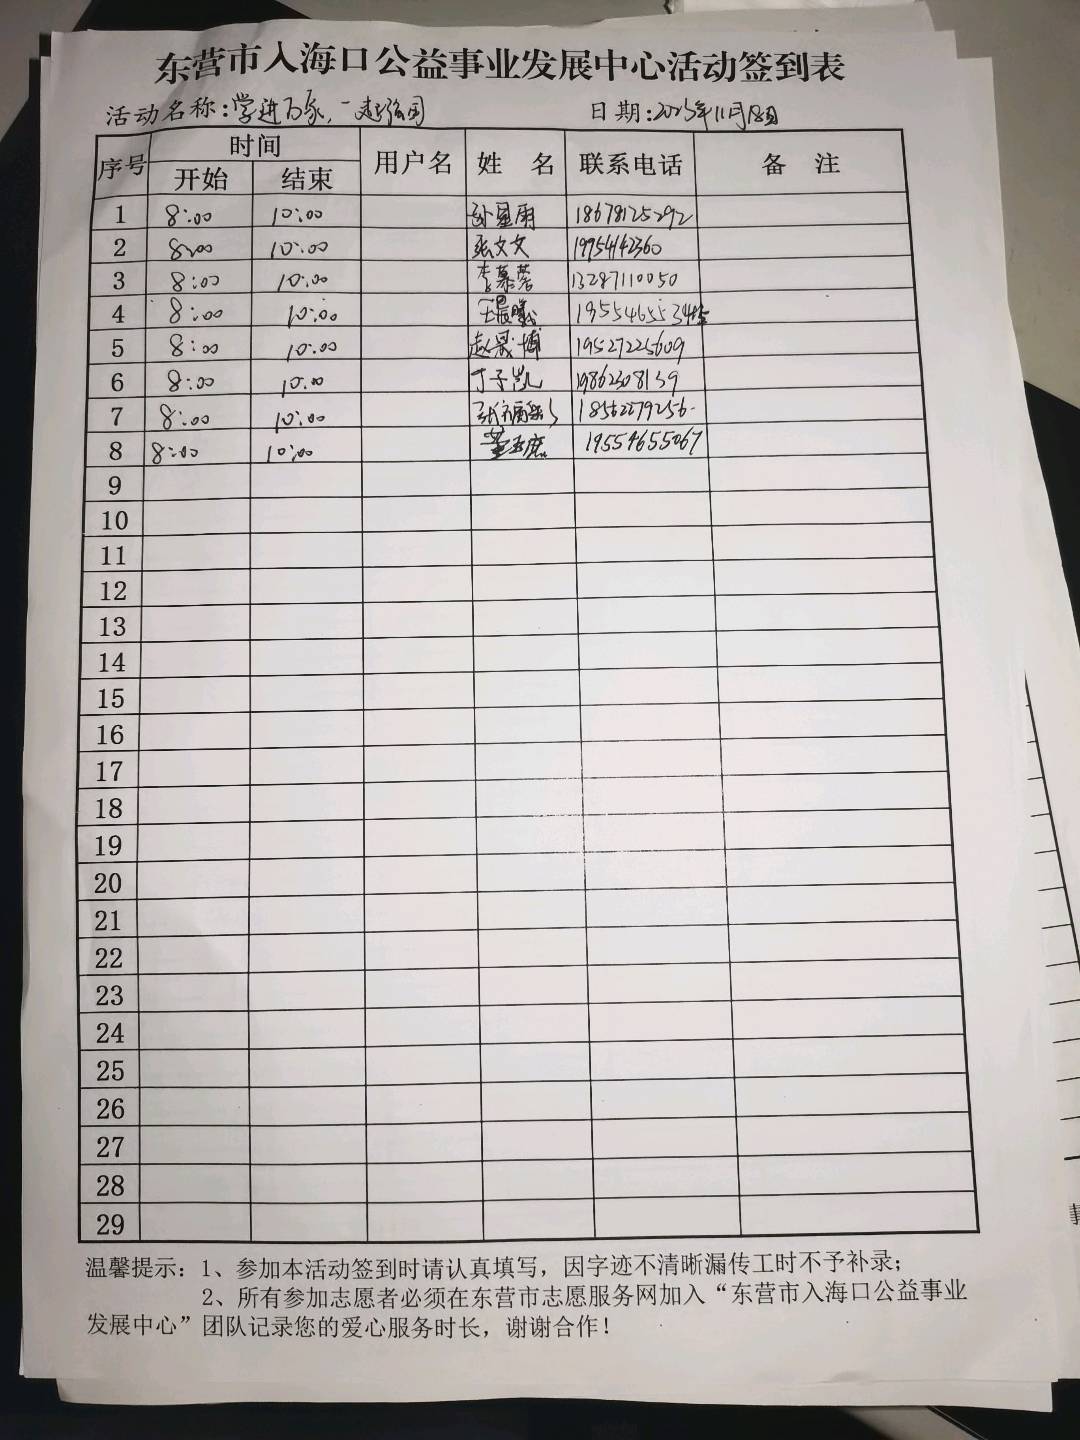 东营市入海口公益事业发展中心活动签到表
活动名称：学进万家，一起强国 日期：2023年11月18日
序号 时间 用户名 姓 名 联系电话 备 注
开始 结束
1 8:00 10:00 孙星雨 18678125292
2 8:00 10:00 张文文 19954142360
3 8:00 10:00 李慕蓉 13287110050
4 8:00 10:00 王晨曦
5 8:00 10:00 赵晟博 19527225609
6 8:00 10:00 丁子凯 19862308139
7 8:00 10:00 18562279256
8 8:00 10:00 19554655067
9
10
11
12
13
14
15
16
17
18
19
20
21
22
23
24
25
26
27
28
29
温馨提示：1、参加本活动签到时请认真填写，因字迹不清晰漏传工时不予补录；
2、所有参加志愿者必须在东营市志愿服务网加入“东营市入海口公益事业
发展中心”团队记录您的爱心服务时长，谢谢合作！